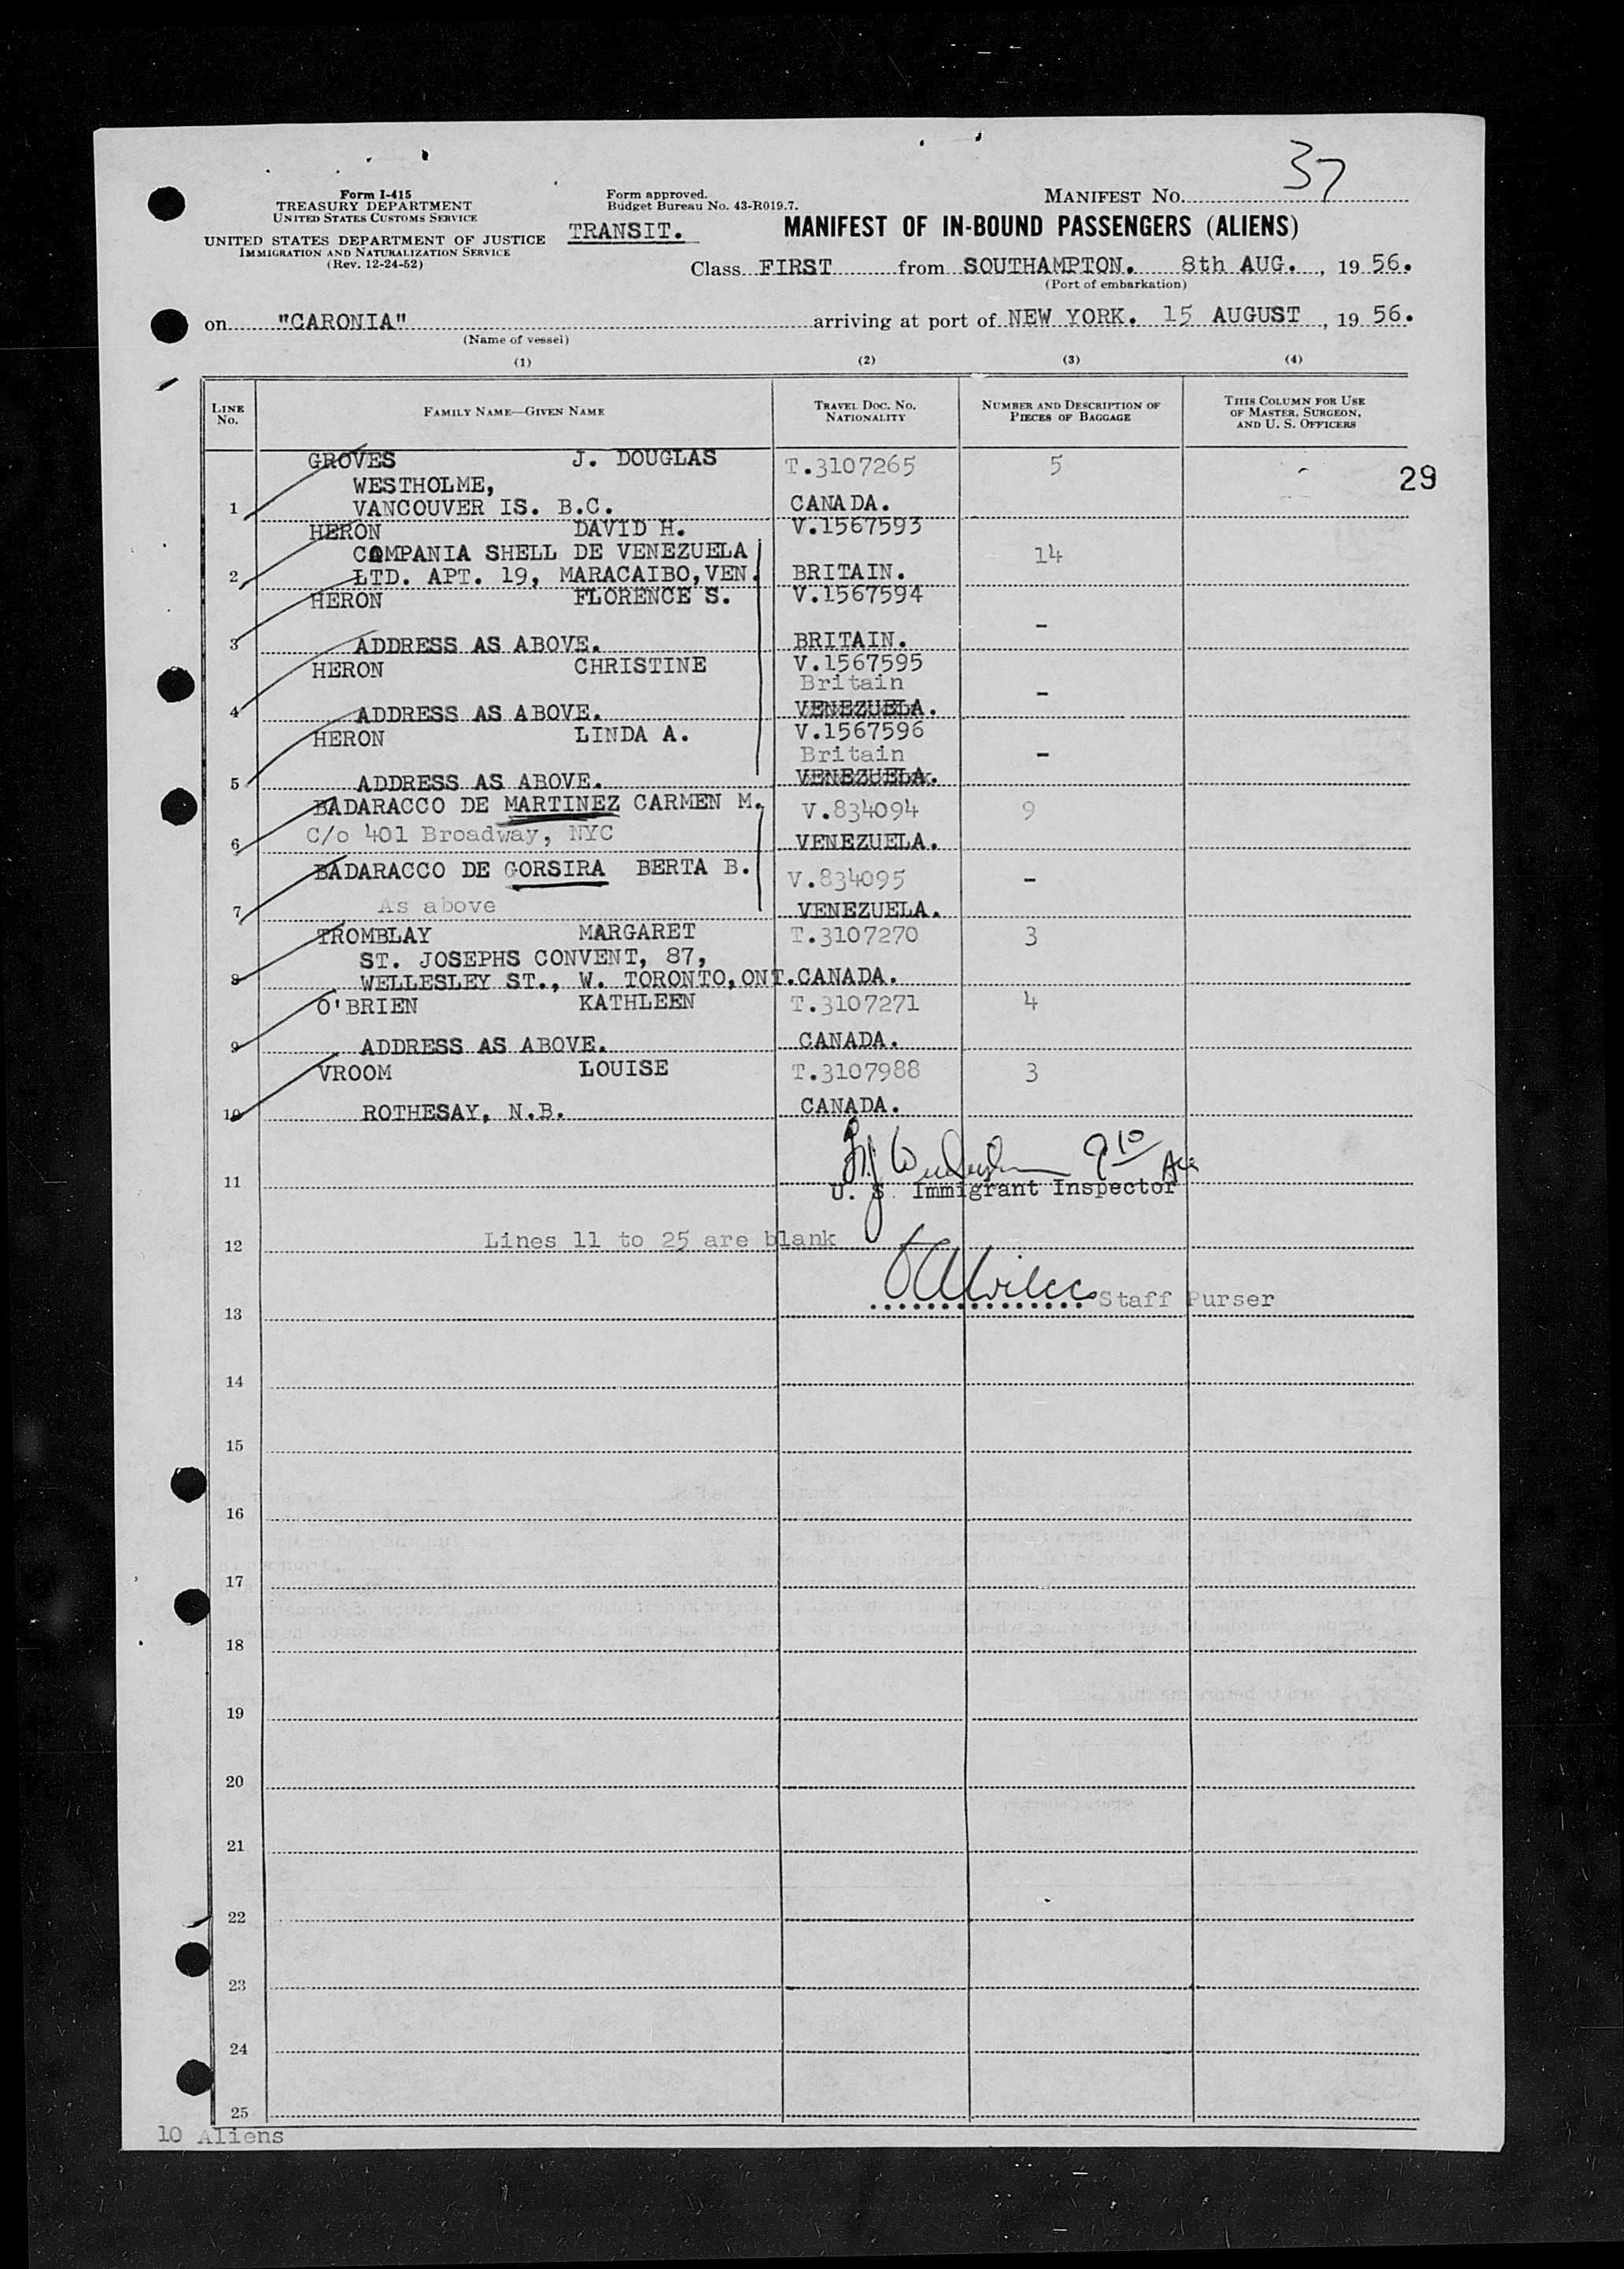 37
Form I-415
TREASURY DEPARTMENT
UNITED STATES CUSTOMS SERVICE
UNITED STATES DEPARTMENT OF JUSTICE
IMMIGRATION AND NATURALIZATION SERVICE
(Rev. 12-24-52)
Form approved.
Budget Bureau No. 43-R019.7.
TRANSIT.
MANIFEST NO.
MANIFEST OF IN-BOUND PASSENGERS (ALIENS)
Class FIRST from SOUTHAMPTON. 8th AUG. , 19 56.
(Port of embarkation)
on "CARONIA" arriving at port of NEW YORK. 15 AUGUST , 19 56.
(Name of vessel)
(1) (2) (3) (4)
LINE NO. FAMILY NAME—GIVEN NAME TRAVEL DOC. NO. NATIONALITY NUMBER AND DESCRIPTION OF PIECES OF BAGGAGE THIS COLUMN FOR USE OF MASTER, SURGEON, AND U. S. OFFICERS
GROVES J. DOUGLAS T.3107265 5
29
WESTHOLME,
1 VANCOUVER IS. B.C. CANADA.
HERON DAVID H. V.1567593
COMPANIA SHELL DE VENEZUELA 14
2 LTD. APT. 19, MARACAIBO, VEN. BRITAIN.
HERON FLORENCE S. V.1567594
-
3 ADDRESS AS ABOVE. BRITAIN.
HERON CHRISTINE V.1567595
Britain -
4 ADDRESS AS ABOVE. VENEZUELA.
HERON LINDA A. V.1567596
Britain -
5 ADDRESS AS ABOVE. VENEZUELA.
BADARACCO DE MARTINEZ CARMEN M. V.834094 9
6 C/o 401 Broadway, NYC VENEZUELA.
BADARACCO DE GORSIRA BERTA B. V.834095 -
7 As above VENEZUELA.
TROMBLAY MARGARET T.3107270 3
ST. JOSEPHS CONVENT, 87,
8 WELLESLEY ST., W. TORONTO, ONT. CANADA.
O'BRIEN KATHLEEN T.3107271 4
9 ADDRESS AS ABOVE. CANADA.
VROOM LOUISE T.3107988 3
10 ROTHESAY, N.B. CANADA.
11 U. S. Immigrant Inspector
12 Lines 11 to 25 are blank
13 Staff Purser
14
15
16
17
18
19
20
21
22
23
24
25
10 Aliens